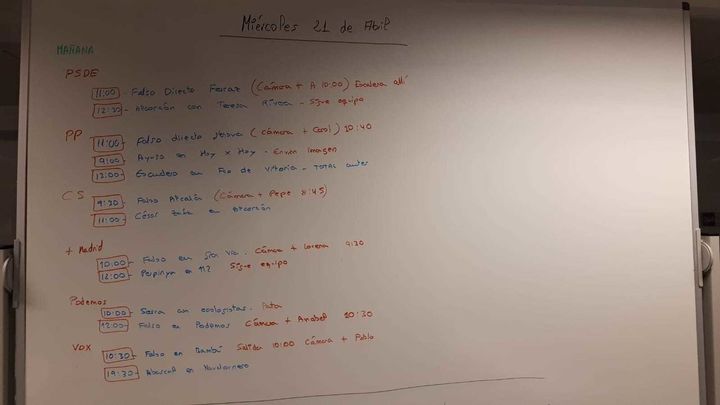 Miércoles 21 de Abril
MAÑANA
PSOE
11:00 - Falso Directo Ferraz (Cámara + A 10:00) Escalera allí
12:30 - Alcorcón con Teresa Rivera - Sigue equipo
PP
11:00 - Falso directo Génova (cámara + Carol) 10:40
9:00 - Ayuso en Hoy x Hoy - Envían imagen
12:00 - Escudero en Fco de Vitoria - TOTAL antes
CS
9:30 - Falso Alcalá (Cámara + Pepe 8:45)
11:00 - César Zafra en Alcorcón
+ Madrid
10:00 - Falso en Gran Vía. Cámara + Lorena 9:30
12:00 - Perpinya en M2 Sigue equipo
Podemos
10:00 - Serra con ecologistas.
12:00 - Falso en Podemos Cámara + Anabel 10:30
VOX
10:30 - Falso en Bambú Salida 10:00 Cámara + Pablo
19:30 - Abascal en Navalcarnero